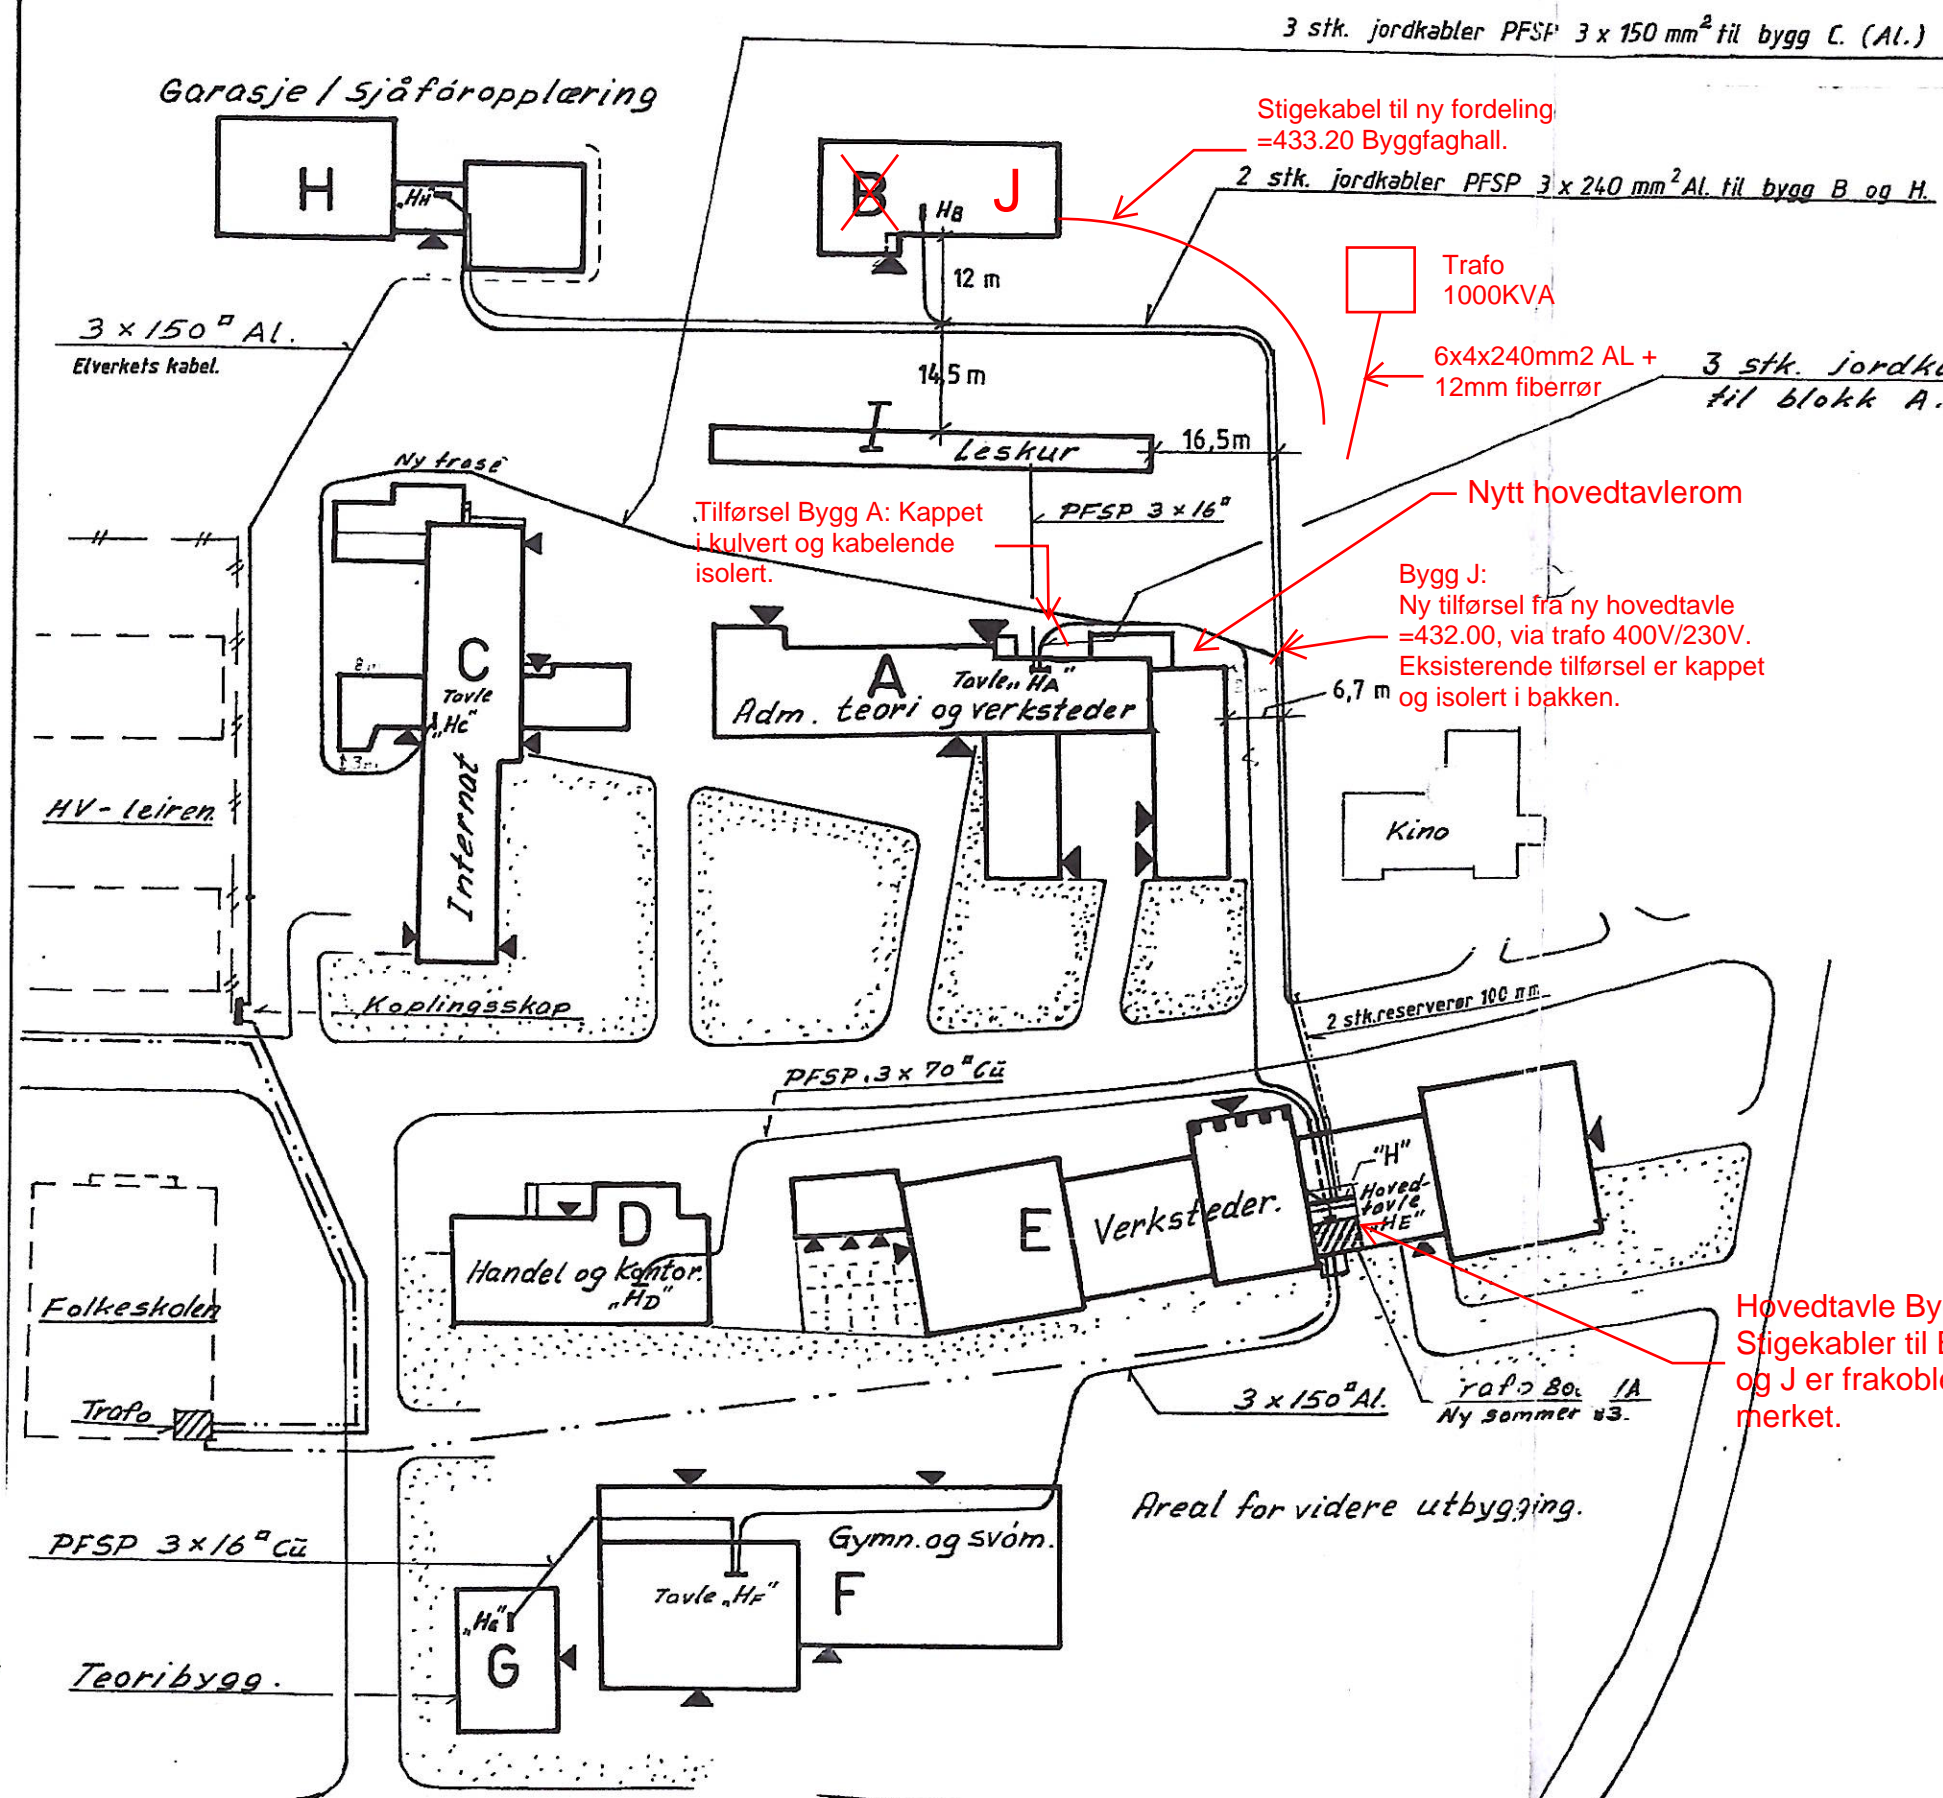 3 stk. jordkabler PFSP 3 x 150 mm² til bygg C. (Al.)
Garasje / sjåføropplæring
H
„HH"
B
J
HB
Stigekabel til ny fordeling
=433.20 Byggfaghall.
2 stk. jordkabler PFSP 3 x 240 mm² Al. til bygg B og H.
12 m
Trafo
1000KVA
3 × 150 ¤ Al.
Elverkets kabel.
14,5 m
6x4x240mm2 AL +
12mm fiberrør
3 stk. jordka
til blokk A.
I
Leskur
16,5m
Ny trasé
PFSP 3 × 16 ¤
Nytt hovedtavlerom
Tilførsel Bygg A: Kappet
i kulvert og kabelende
isolert.
Bygg J:
Ny tilførsel fra ny hovedtavle
=432.00, via trafo 400V/230V.
Eksisterende tilførsel er kappet
og isolert i bakken.
C
Tavle
„HC"
Internat
8 m
3m
A
Tavle „HA"
Adm. teori og verksteder
6,7 m
HV-leiren
Kino
Koplingsskap
2 stk.reserverør 100 mm
PFSP. 3 × 70 ¤ Cu
"H"
Hoved-
tavle
„HE"
D
Handel og Kontor.
„HD"
E
Verksteder.
Folkeskolen
Hovedtavle By
Stigekabler til
og J er frakoble
merket.
Trafo
3 × 150 ¤ Al.
Ny sommer
Areal for videre utbygging.
PFSP 3 × 16 ¤ Cu
Gymn. og svøm.
Tavle „HF"
F
„HG"
G
Teoribygg.